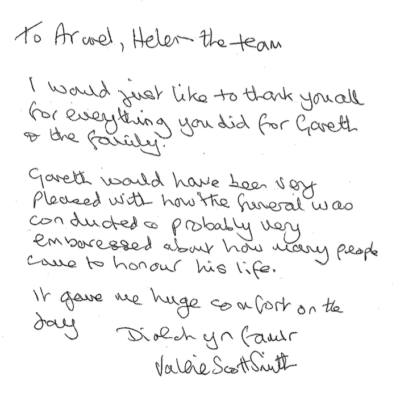 To Arwel, Helen & the team
I would just like to thank you all
for everything you did for Gareth
& the family.
Gareth would have been very
pleased with how the funeral was
conducted & probably very
embaressed about how many people
came to honour his life.
It gave me huge comfort on the
day
Diolch yn fawr
Valerie Scott Smith